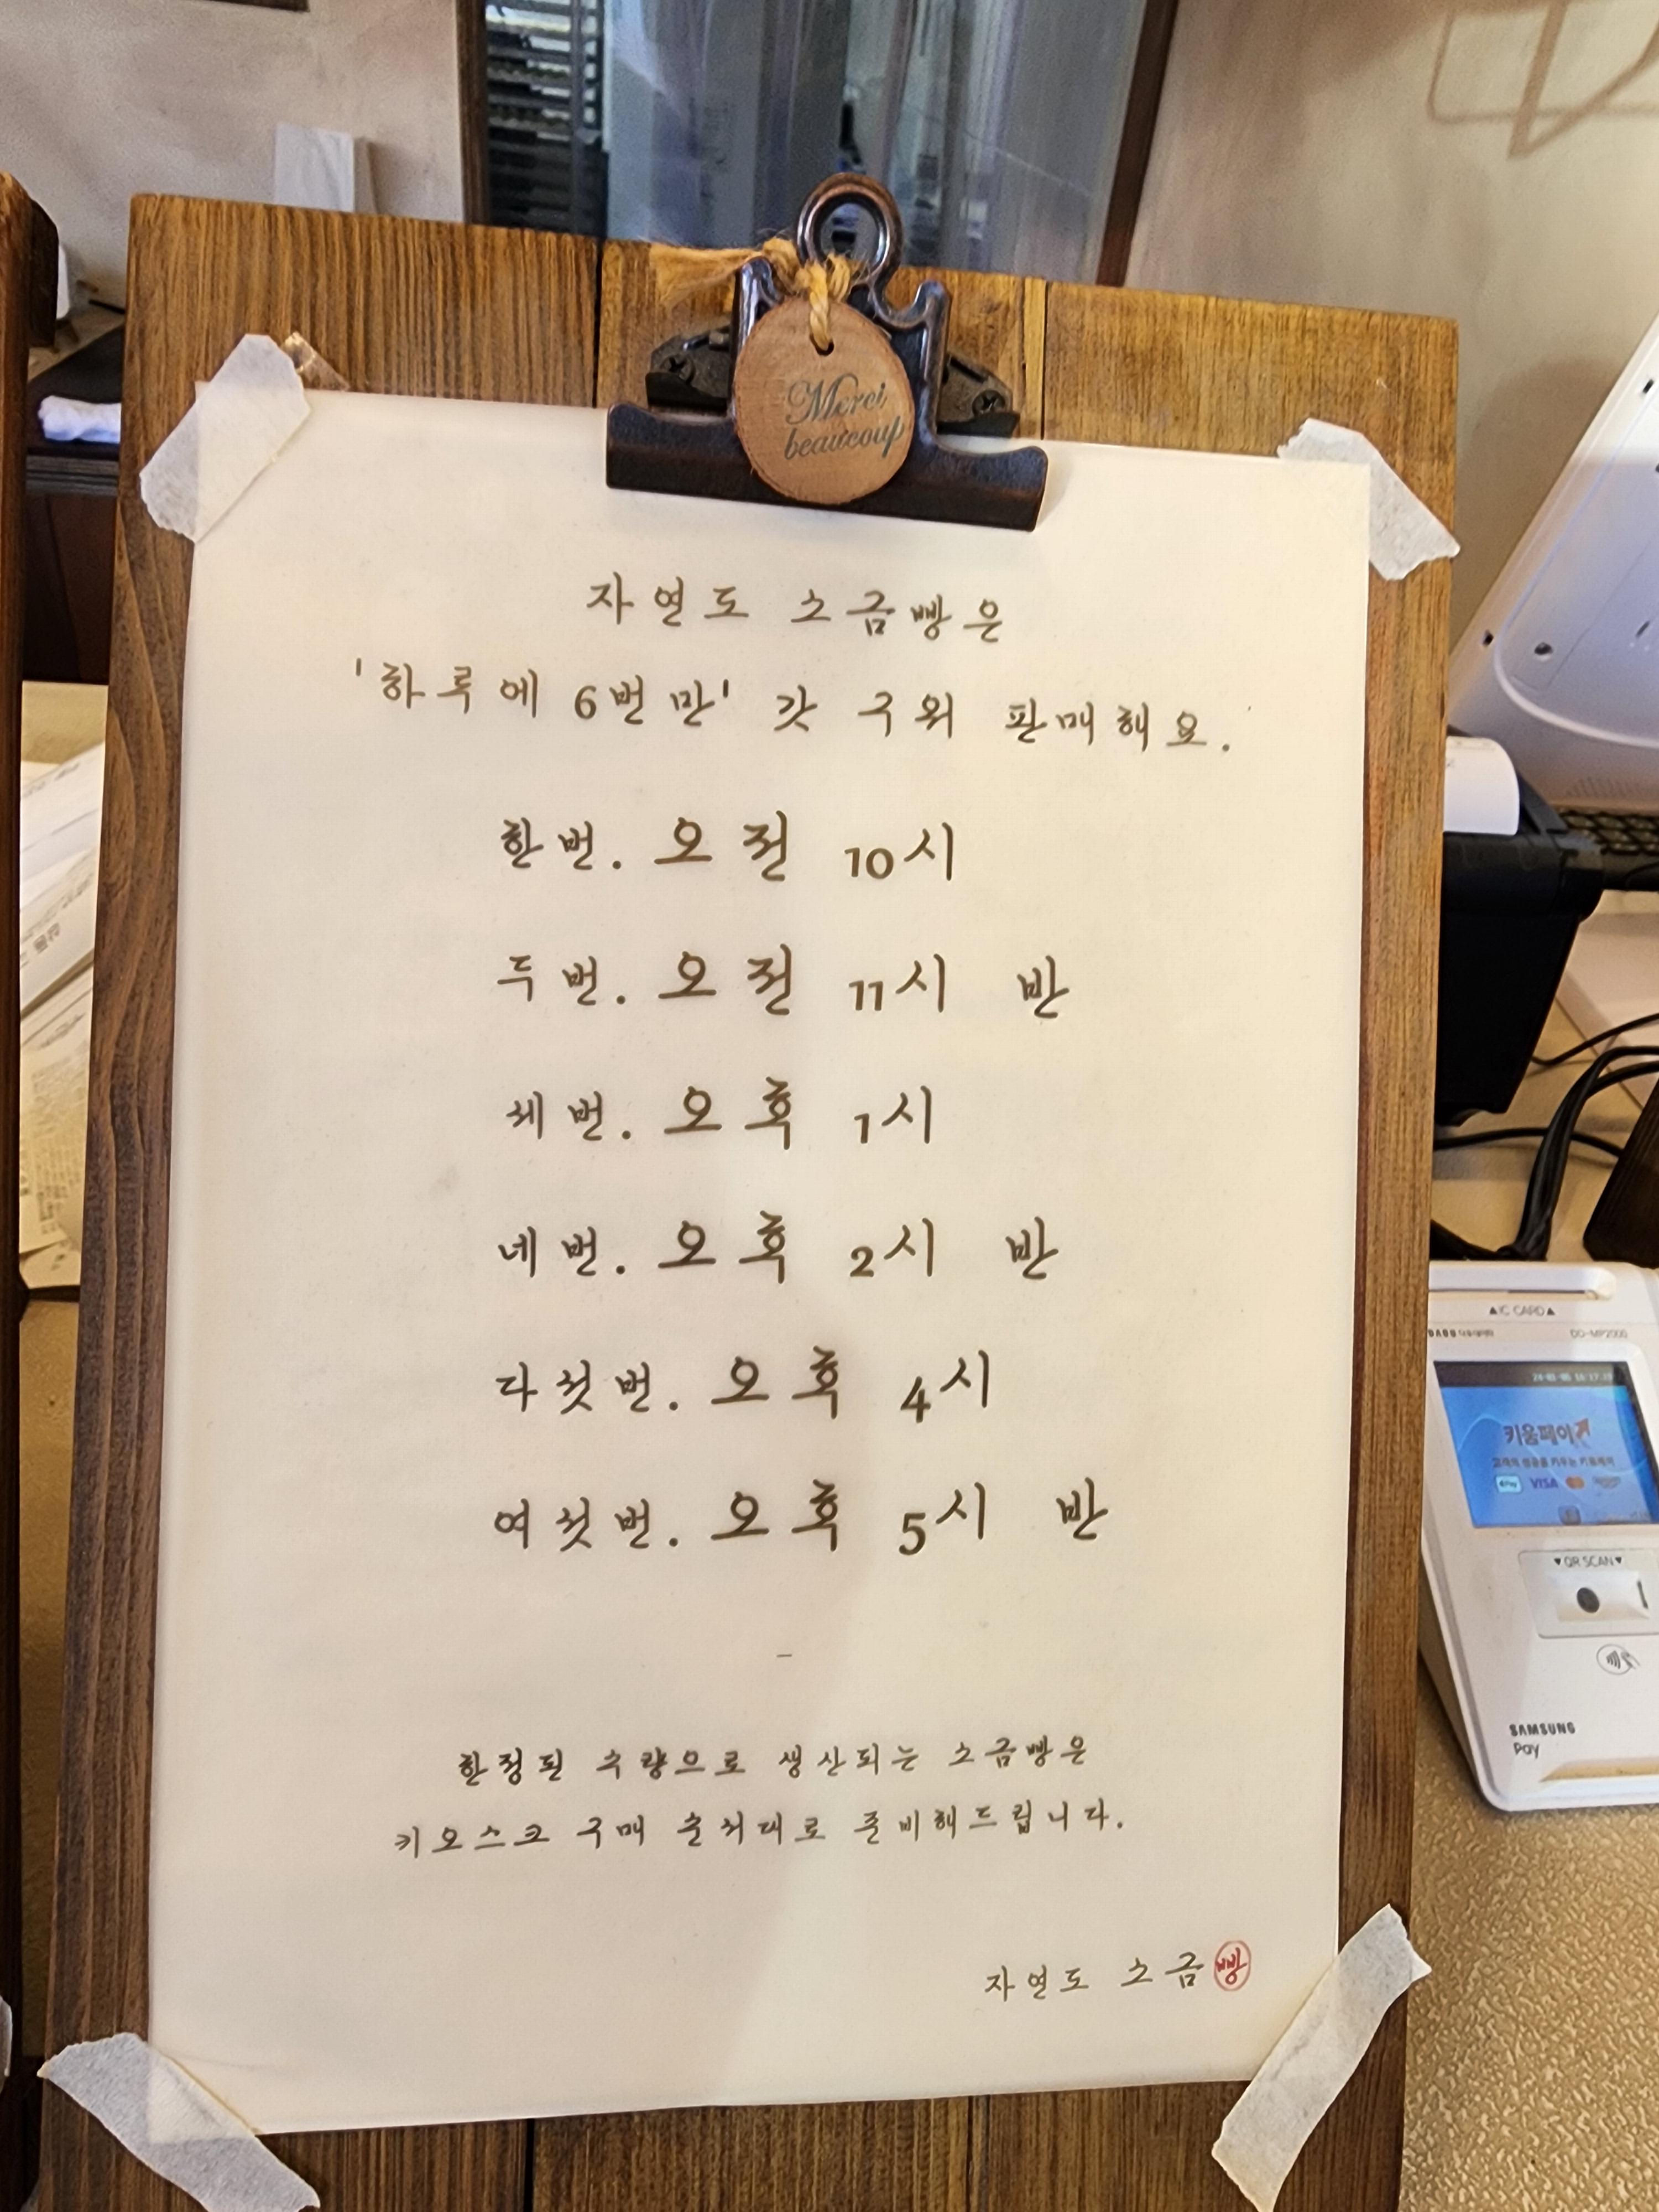 Merci
beaucoup
자연도 소금빵은
'하루에 6번만' 갓 구워 판매해요.
한번. 오전 10시
두번. 오전 11시 반
세번. 오후 1시
네번. 오후 2시 반
다섯번. 오후 4시
여섯번. 오후 5시 반
-
한정된 수량으로 생산되는 소금빵은
키오스크 구매 순서대로 준비해드립니다.
자연도 소금빵
▲IC CARD▲
키움페이
VISA
▼QR SCAN▼
SAMSUNG
Pay